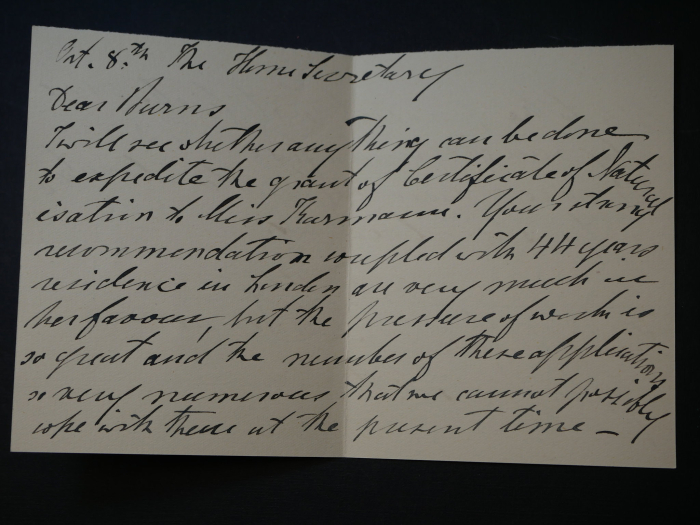 Oct. 8.th The Home Secretary
Dear Burns
I will see whether anything can be done
to expedite the grant of Certificate of Natural
isation to Miss Your strong
recommendation coupled with 44 years
residence in London are very much in
her favour, but the pressure of work is
so great and the number of these applications
so very numerous, that we cannot possibly
cope with them at the present time —